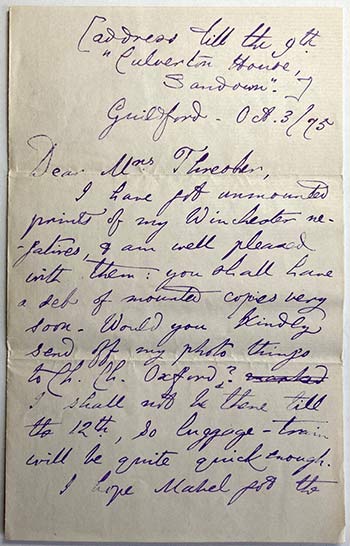 [address till the 9th
"Culverton House,
Sandown".]
Guildford - Oct. 3/75
Dear Mrs Thresher,
I have got unmounted
prints of my Winchester ne-
-gatives, & am well pleased
with them: you shall have
a set of mounted copies very
soon. Would you kindly
send off my photo things
to Ch. Ch. Oxford?
I shall not be there till
the 12th, so luggage-train
will be quite quick enough.
I hope Mabel got the